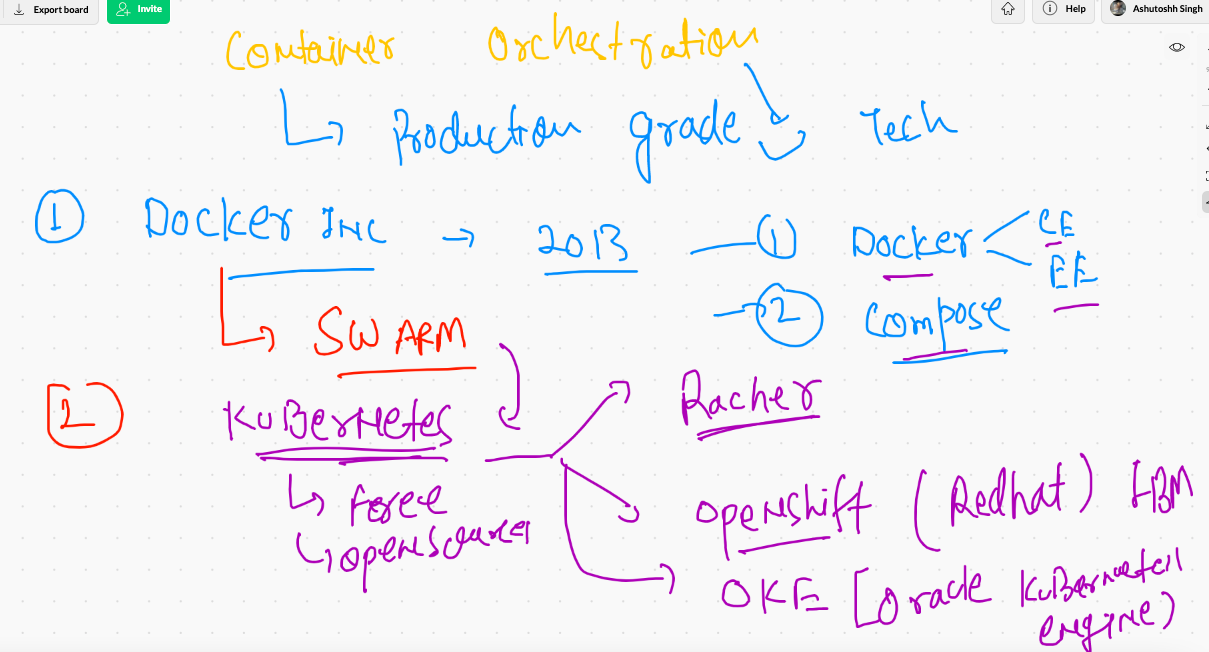 Export board Invite Help Ashutoshh Singh
Container Orchestration
Production grade Tech
1 Docker INC → 2013 (1) Docker CE
EE
SWARM 2 Compose
2 Kubernetes Racher
Foree
opensource
openshift (Redhat) IBM
OKE [Oracle Kubernetes
engine)